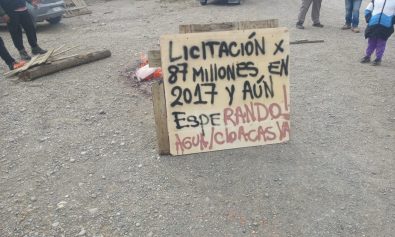 LICITACIÓN X
87 MILLONES EN
2017 Y AÚN
ESPERANDO!
AGUA/CLOACAS YA